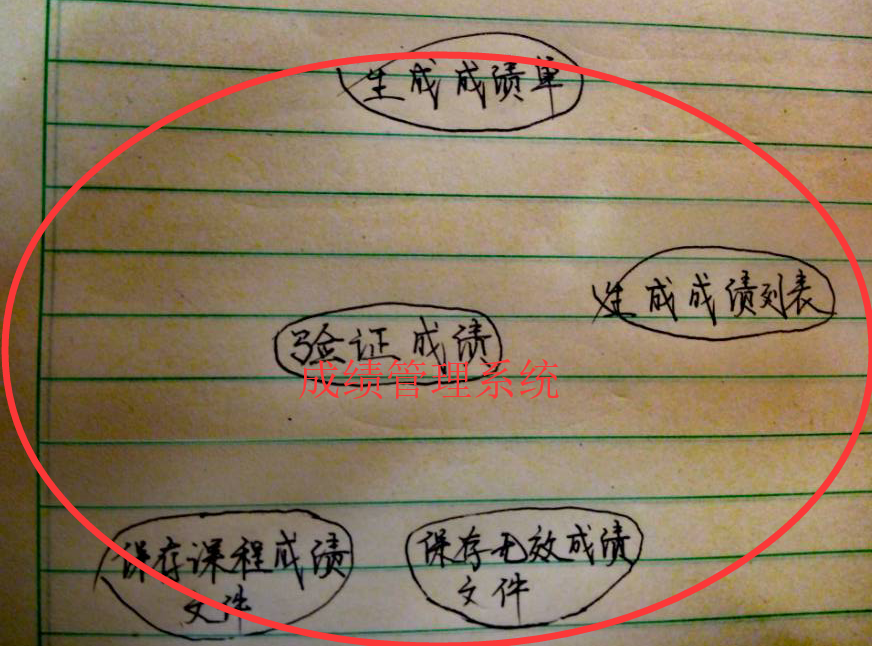 生成成绩单
生成成绩列表
验证成绩
成绩管理系统
保存课程成绩
文件
保存无效成绩
文件